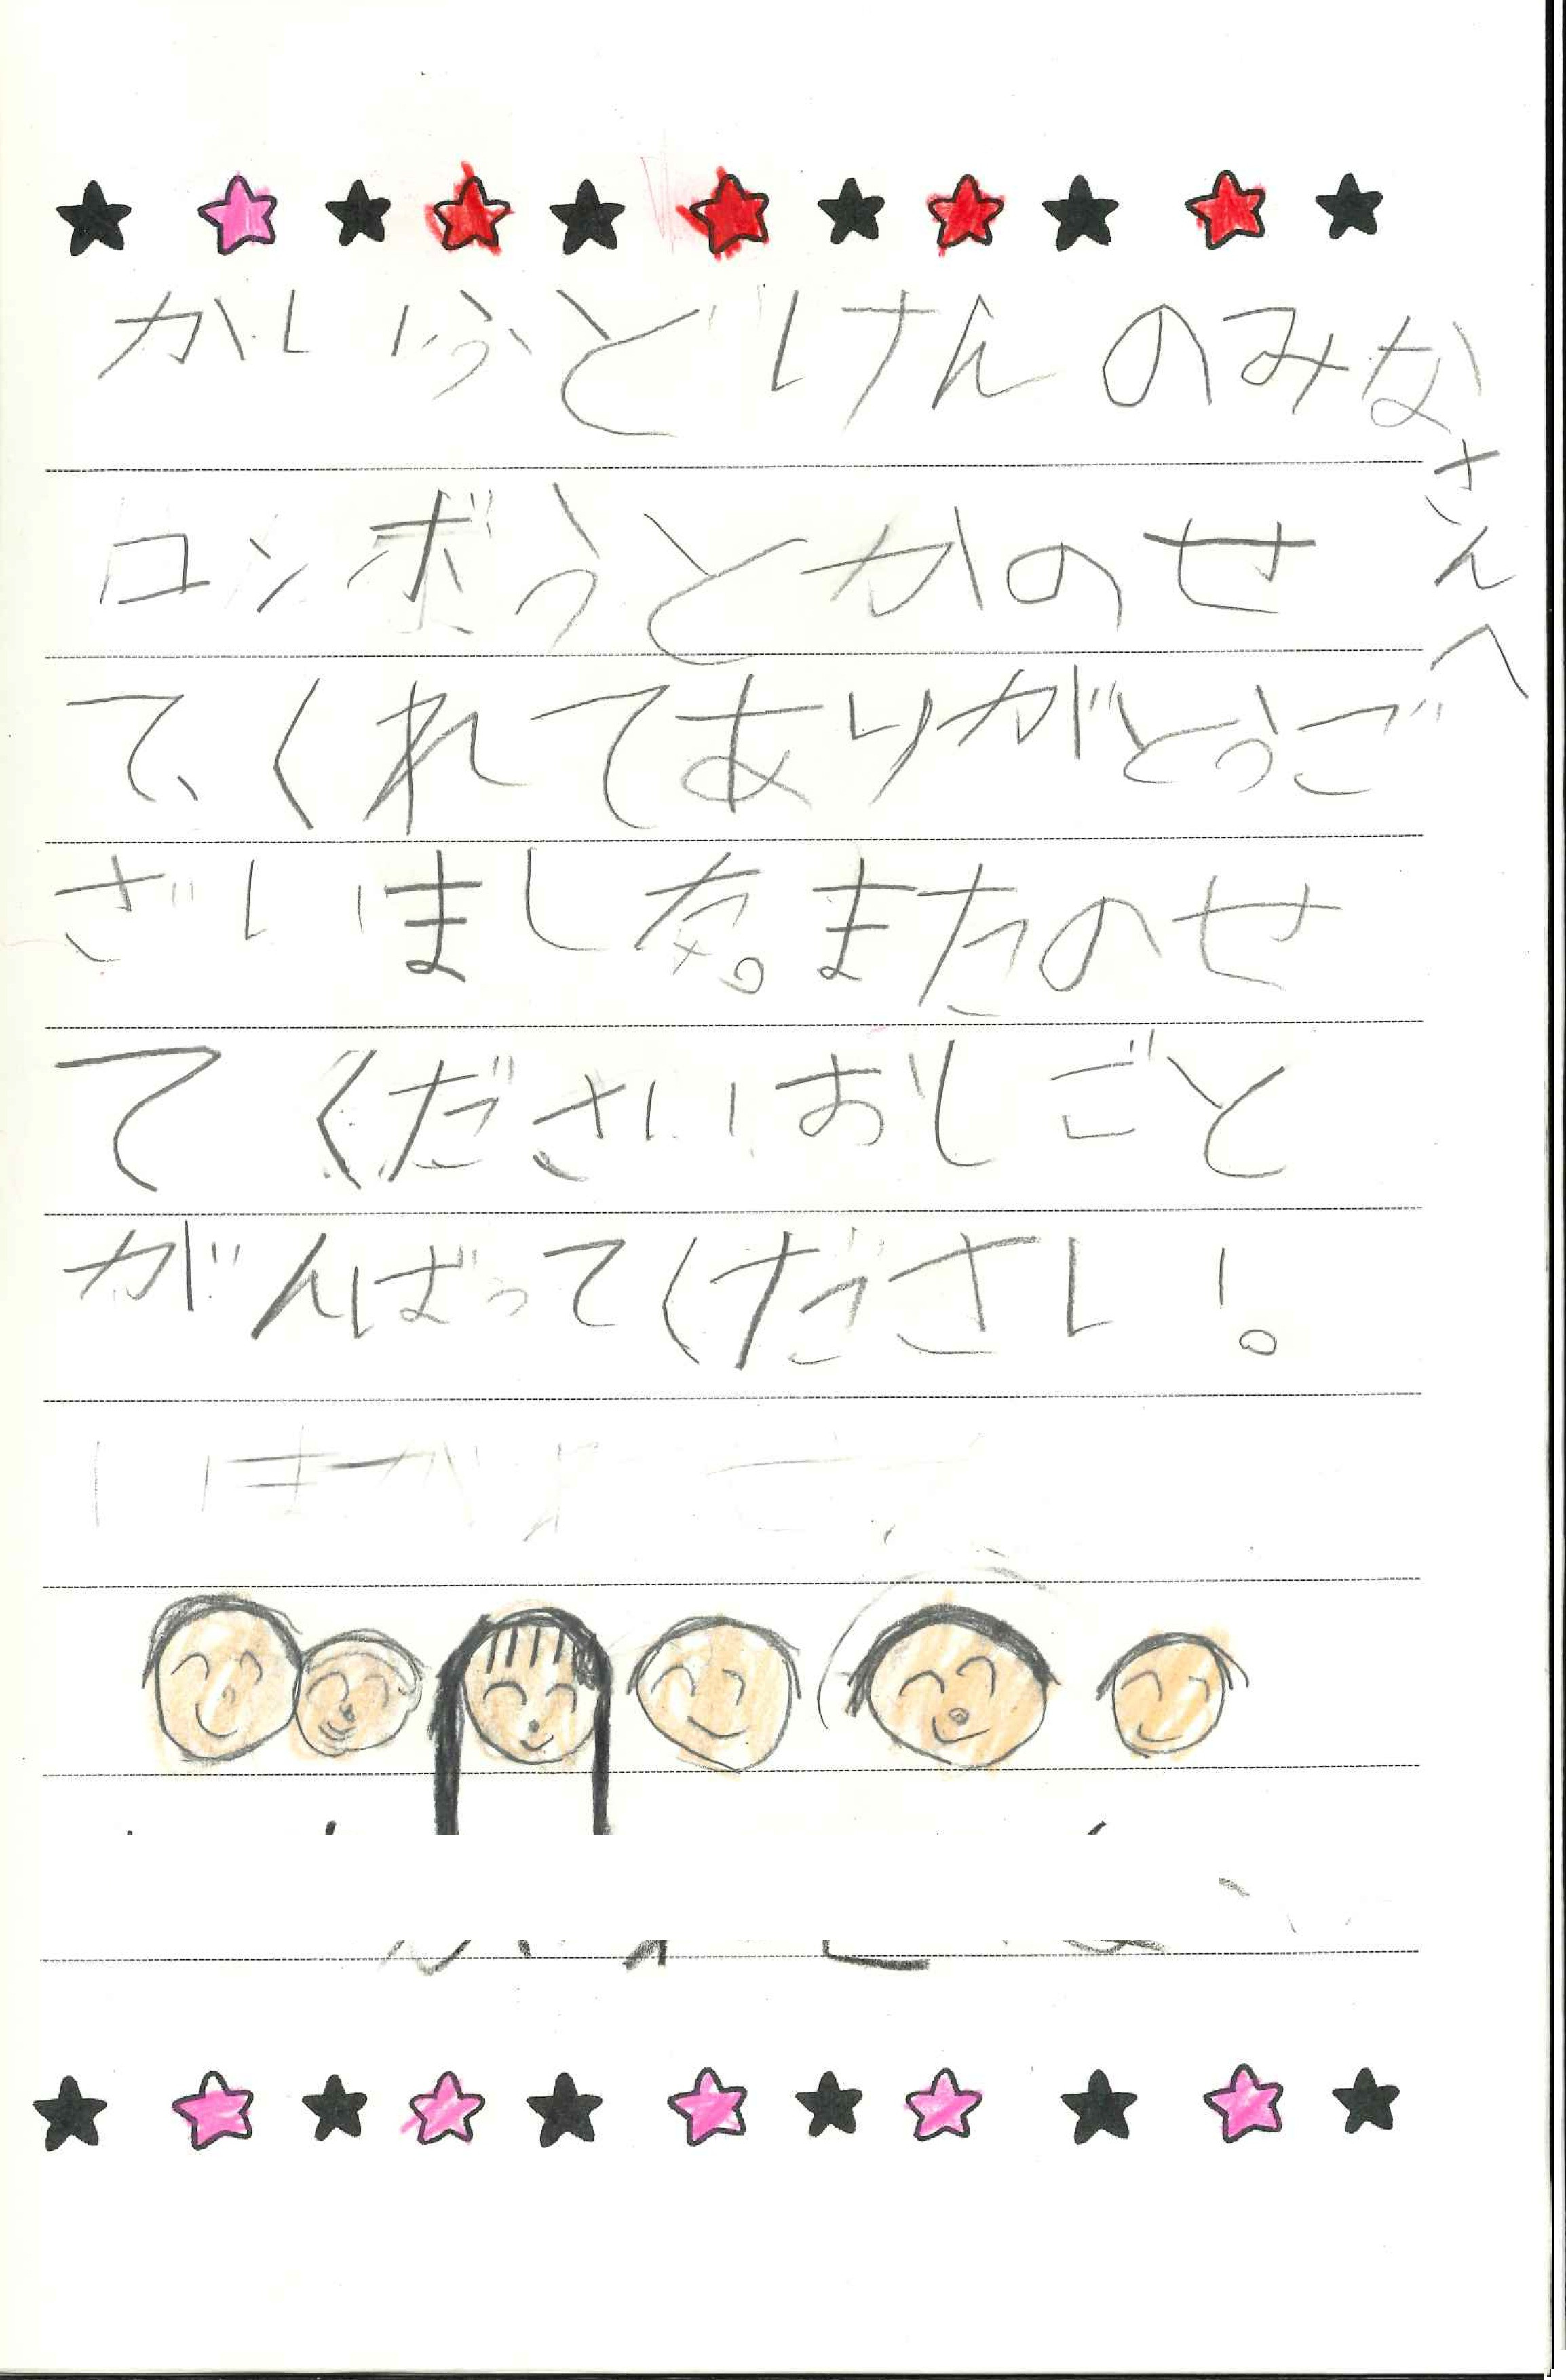 かいふどけんのみなさんへ
ユンボうとかのせ
てくれてありがとうご
ざいました。またのせ
てくださいおしごと
がんばってください。